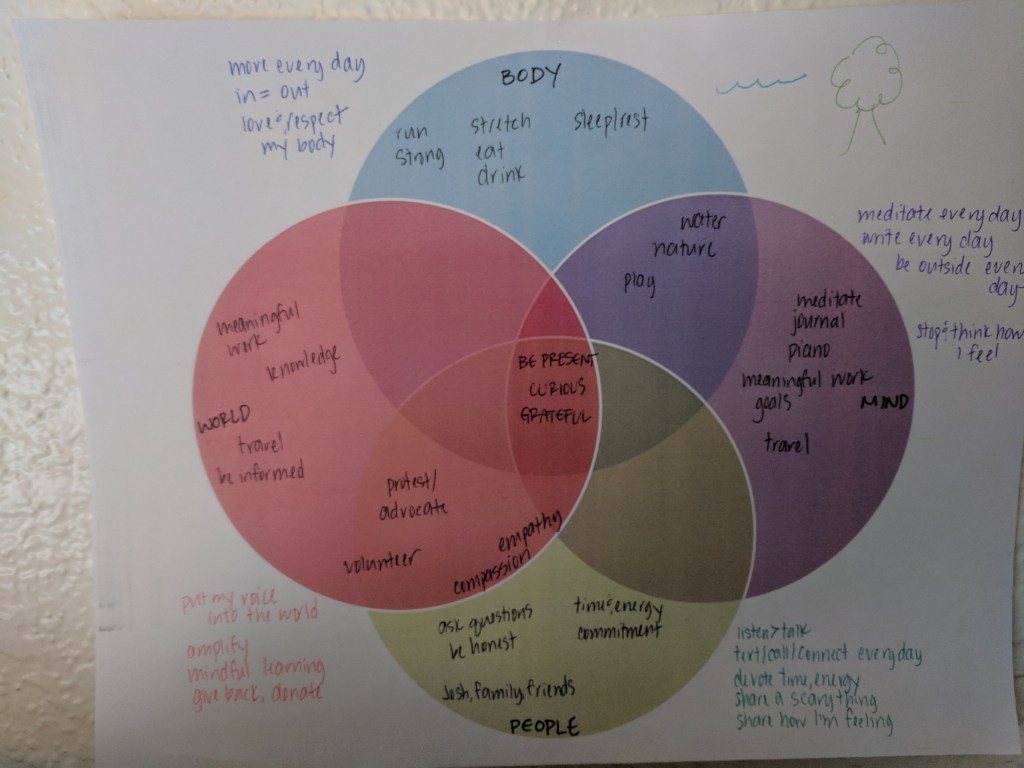 more every day
in = out
love & respect
my body
BODY
run
strong
stretch
eat
drink
sleep/rest
water
nature
play
meditate every day
write every day
be outside every
day
stop & think how
I feel
meditate
journal
piano
meaningful work
goals
MIND
travel
meaningful
work
knowledge
WORLD
travel
be informed
BE PRESENT
CURIOUS
GRATEFUL
protest/
advocate
volunteer
empathy
compassion
ask questions
be honest
time & energy
commitment
Josh, family, friends
PEOPLE
put my voice
into the world
amplify
mindful learning
give back, donate
listen > talk
text/call/connect every day
devote time, energy
share a scary thing
share how I'm feeling